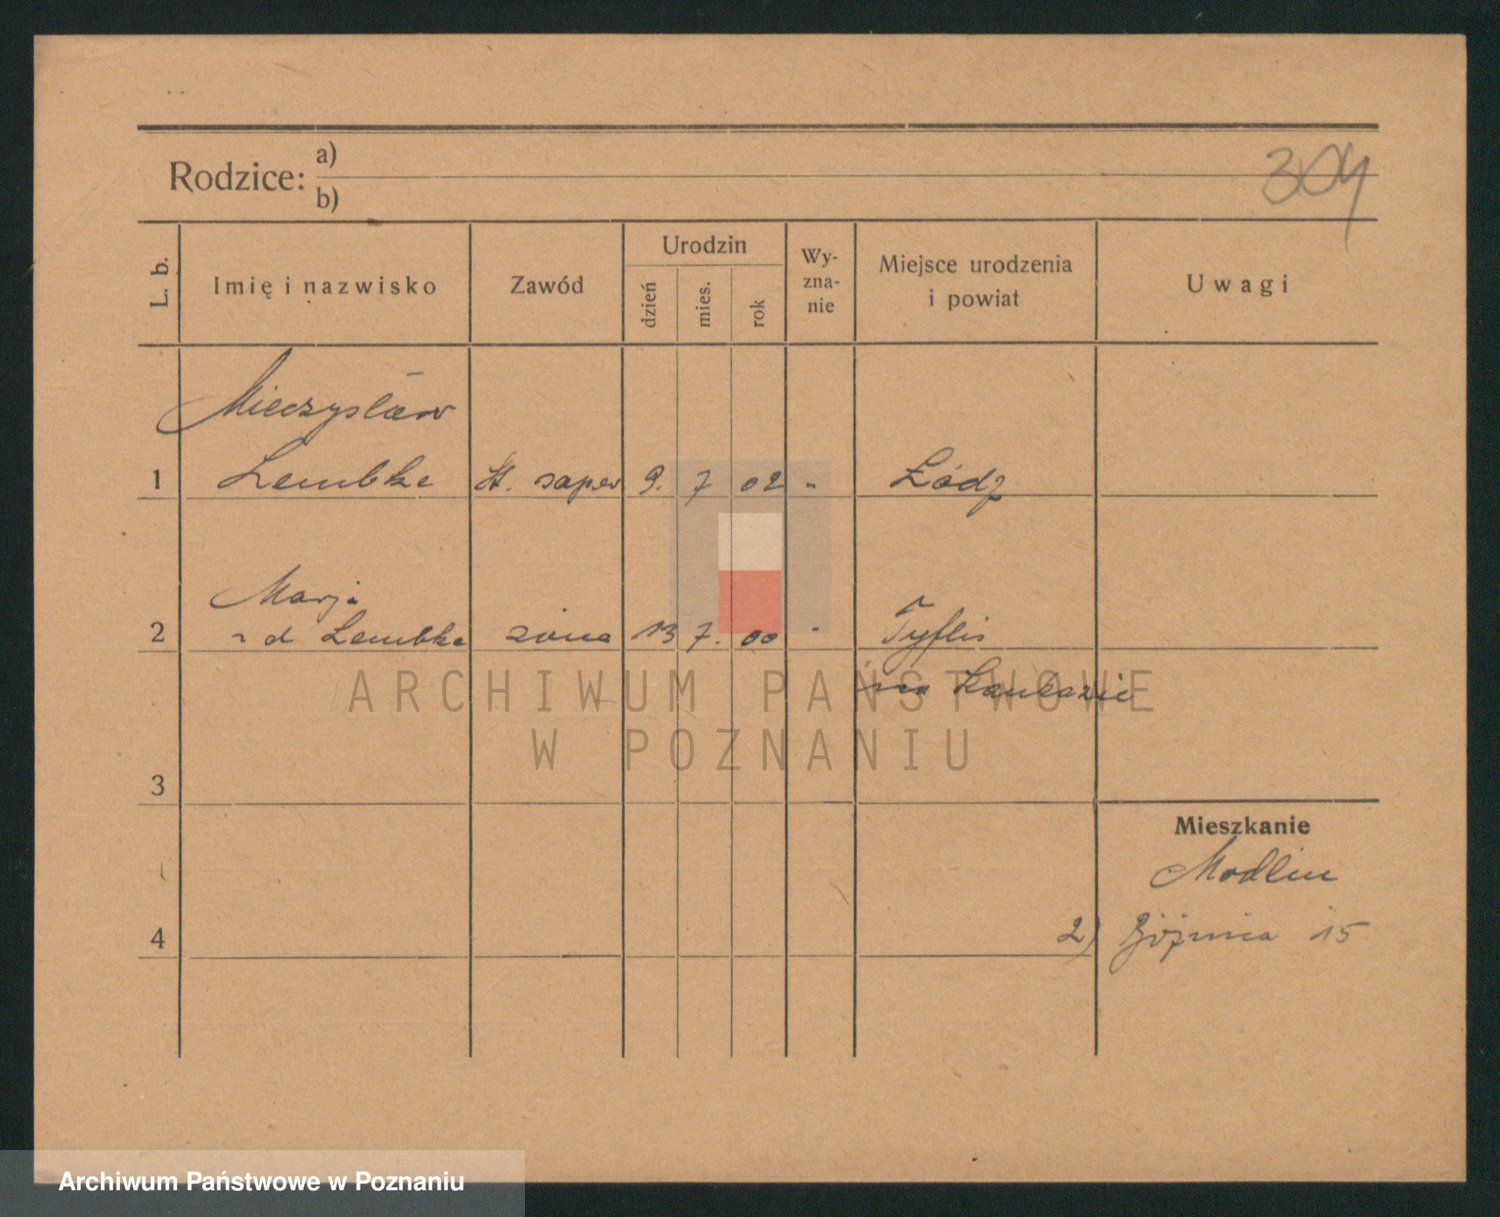 304
Rodzice: a)
b)
L. b.
Imię i nazwisko
Zawód
Urodzin
dzień
mies.
rok
Wy-
zna-
nie
Miejsce urodzenia
i powiat
Uwagi
Mieczysław
1 Lembke st. saper 9. 7 02 " Łódź
Marja
2 Lembke żona 13 7. 00 " Tyflis
na Kaukazie
3
Mieszkanie
Modlin
4
2) 15
ARCHIWUM PAŃSTWOWE
W POZNANIU
Archiwum Państwowe w Poznaniu